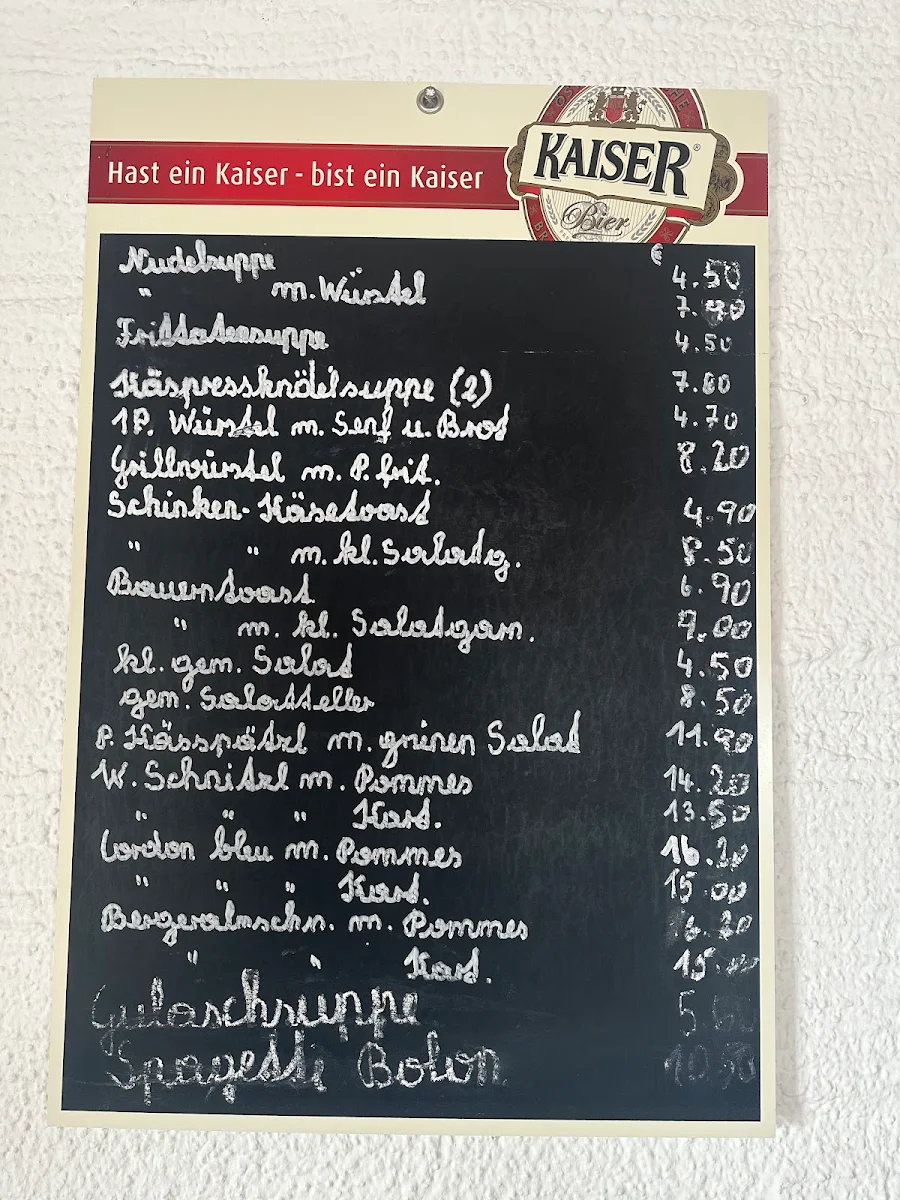 Hast ein Kaiser - bist ein Kaiser
KAISER®
Bier
€
Nudelsuppe 4.50
" m. Würstel 7.90
Frittatensuppe 4.50
Käspressknödelsuppe (2) 7.60
1P. Würstel m. Senf u. Brot 4.70
Grillwürstel m. P. frit. 8.20
Schinken-Käsetoast 4.90
" " m. kl. Salatg. 8.50
Bauerntoast 6.90
" m. kl. Salatgarn. 9.00
kl. gem. Salat 4.50
gem. Salatteller 8.50
P. Kässpätzl m. grünen Salat 11.90
W. Schnitzl m. Pommes 14.20
" " " Kart. 13.50
Cordon bleu m. Pommes 16.20
" " " Kart. 15.00
Bergeralmschn. m. Pommes 16.20
" " Kart. 15.
Gulaschsuppe 5.60
Spagetti Bolon